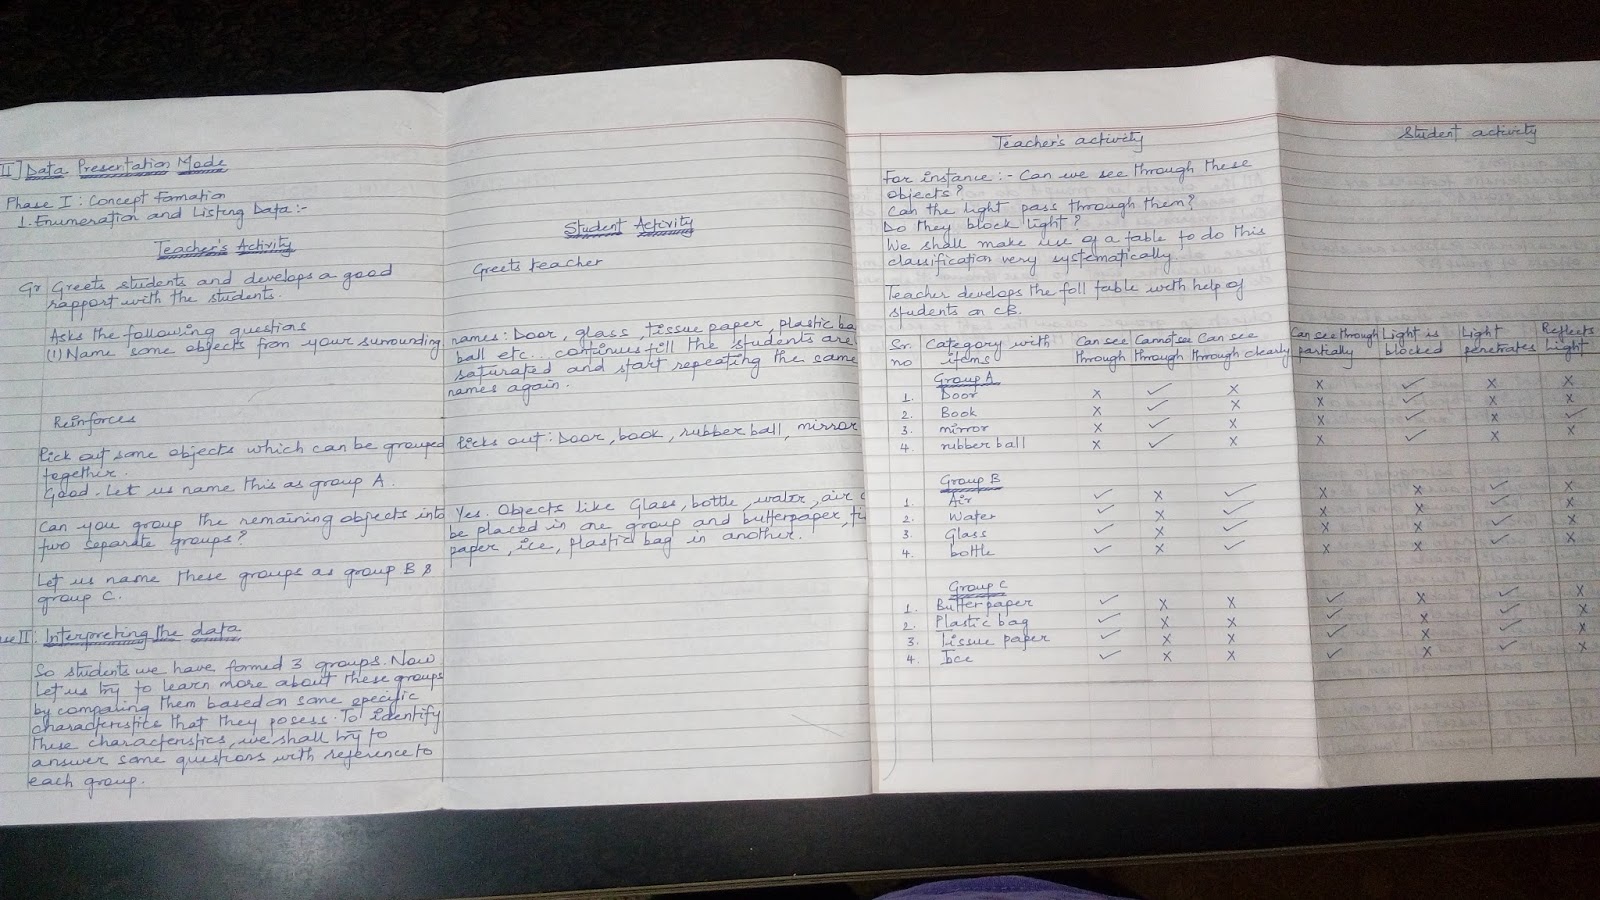 II] Data Presentation Mode
Phase I : Concept Formation
1. Enumeration and Listing Data:-
Teacher's Activity
Gr Greets students and develops a good
rapport with the students.
Asks the following questions
(1) Name some objects from your surrounding
Reinforces
Pick out some objects which can be grouped
together.
Good. Let us name this as group A.
Can you group the remaining objects into
two separate groups?
Let us name these groups as group B &
group C.
II: Interpreting the data
So students we have formed 3 groups. Now
Let us try to learn more about these groups
by comparing them based on some specific
characteristics that they posess. To identify
these characteristics, we shall try to
answer some questions with reference to
each group.
Student Activity
Greets teacher
names: Door, glass, tissue paper, plastic
ball etc... continues till the students are
saturated and start repeating the same
names again.
Picks out: Door, book, rubber ball, mirror
Yes. Objects like Glass, bottle, water, air
be placed in one group and butterpaper,
paper, ice, plastic bag in another.
Teacher's activity
For instance :- Can we see through these
objects?
Can the light pass through them?
Do they block light?
We shall make use of a table to do this
classification very systematically.
Teacher develops the foll table with help of
students on CB.
Student activity
Sr. no Category with items Can see through Cannot see through Can see through clearly Can see through partially Light is blocked Light penetrates Reflects Light
Group A
1. Door x ✓ x x ✓ x x
2. Book x ✓ x x ✓ x x
3. mirror x ✓ x x ✓ x ✓
4. rubber ball x ✓ x x ✓ x x
Group B
1. Air ✓ x ✓ x x ✓ x
2. Water ✓ x ✓ x x ✓ x
3. Glass ✓ x ✓ x x ✓ x
4. bottle ✓ x ✓ x x ✓ x
Group C
1. Butterpaper ✓ x x ✓ x ✓ x
2. Plastic bag ✓ x x ✓ x ✓ x
3. Tissue paper ✓ x x ✓ x ✓ x
4. Ice ✓ x x ✓ x ✓ x